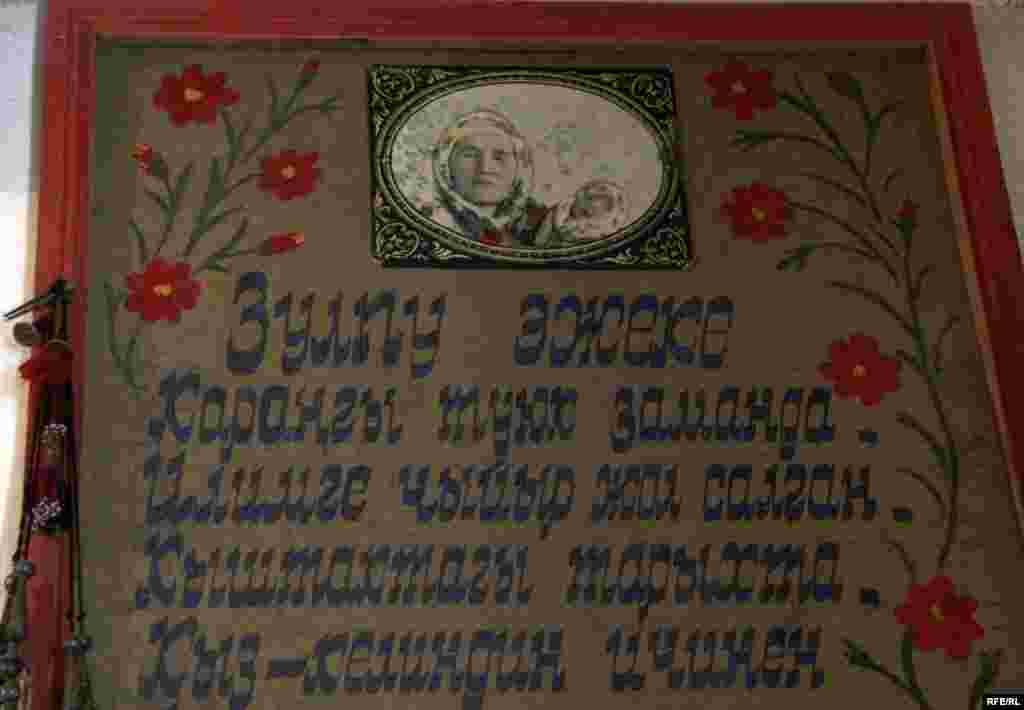 Зулпу эжеке
Караңгы туюк заманда.
Илимге чыйыр жол салган.
Кыштактагы тарыхта.
Кыз-келиндин ичинен
RFE/RL